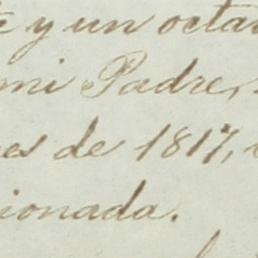 y un octa
mi Padre,
es de 1817,
ionada.